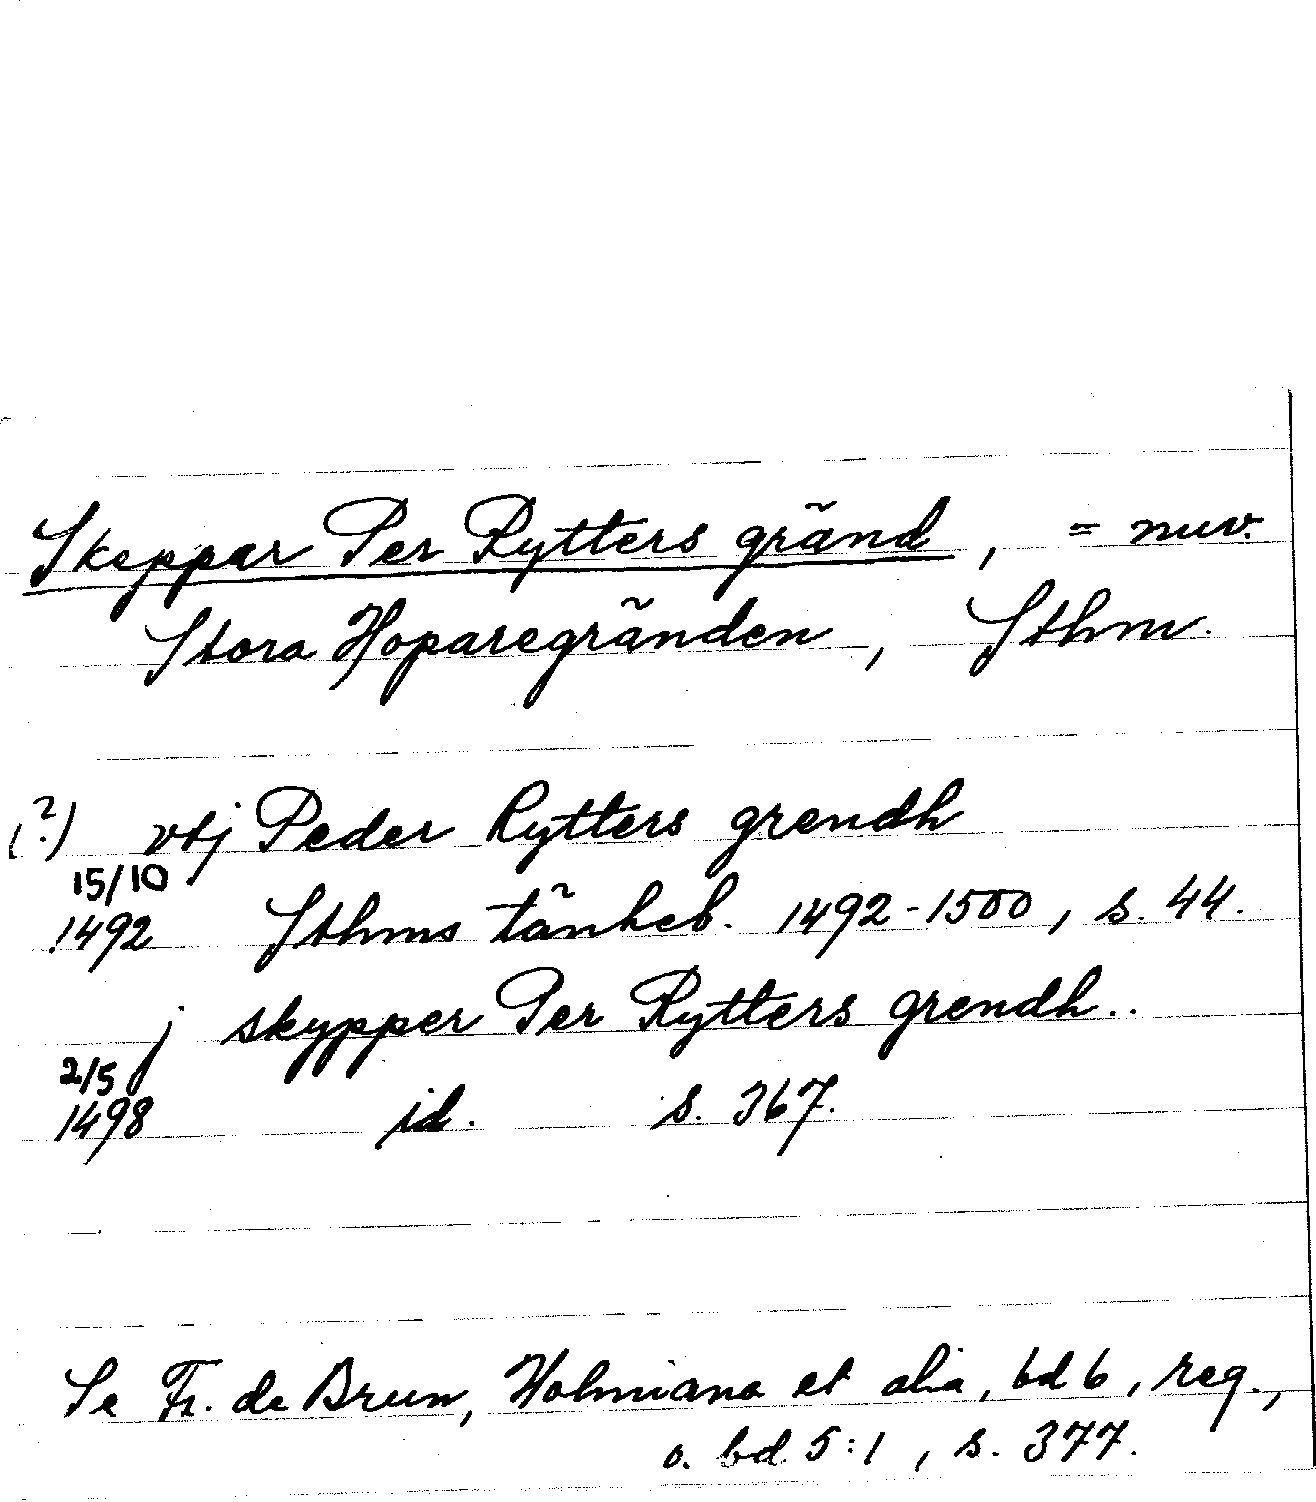 Skeppar Per Rytters gränd, = nuv.
Stora Hoparegränden, Sthm.
(?) vtj Peder Rytters grendh
15/10
1492 Sthms tänkeb. 1492-1500, s. 44.
j skypper Per Rytters grendh..
2/5
1498 id. s. 367.
Se Fr. de Brun, Holmiana et alia, bd 6, reg.,
o. bd 5:1, s. 377.